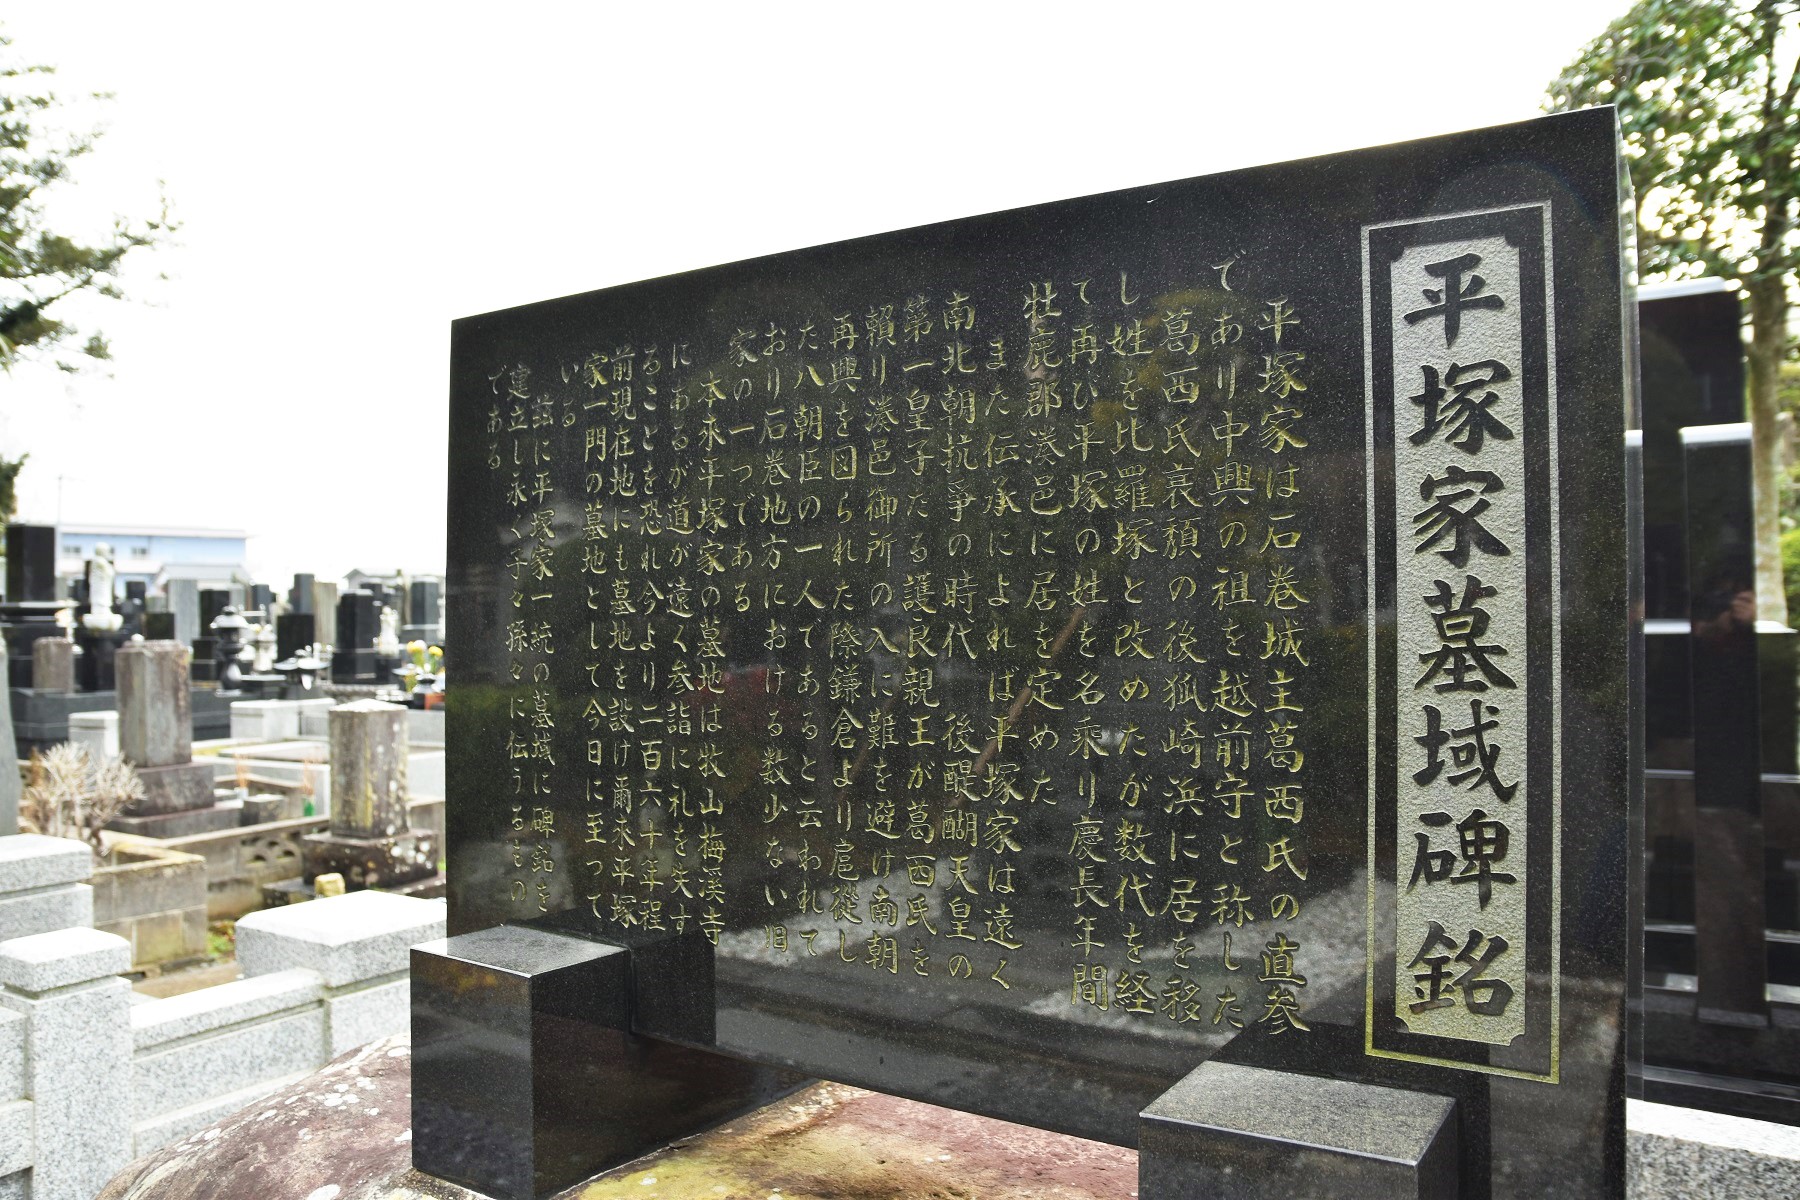 平塚家墓域碑銘
平塚家は石巻城主葛西氏の直参
であり中興の祖を越前守と称した
葛西氏衰頽の後狐崎浜に居を移
し姓を比羅塚と改めたが数代を経
て再び平塚の姓を名乗り慶長年間
牡鹿郡湊邑に居を定めた
また伝承によれば平塚家は遠く
南北朝抗爭の時代 後醍醐天皇の
第一皇子たる護良親王が葛西氏を
賴り湊邑御所の入に難を避け南朝
再興を図られた際鎌倉より扈從し
た八朝臣の一人であると云われて
おり石巻地方における数少ない旧
家の一つである
本永平塚家の墓地は牧山梅溪寺
にあるが道が遠く参詣に礼を失す
ることを恐れ今より二百六十年程
前現在地にも墓地を設け爾永平塚
家一門の墓地として今日に至って
いる
茲に平塚家一統の墓域に碑銘を
建立し永く子々孫々に伝うるもの
である